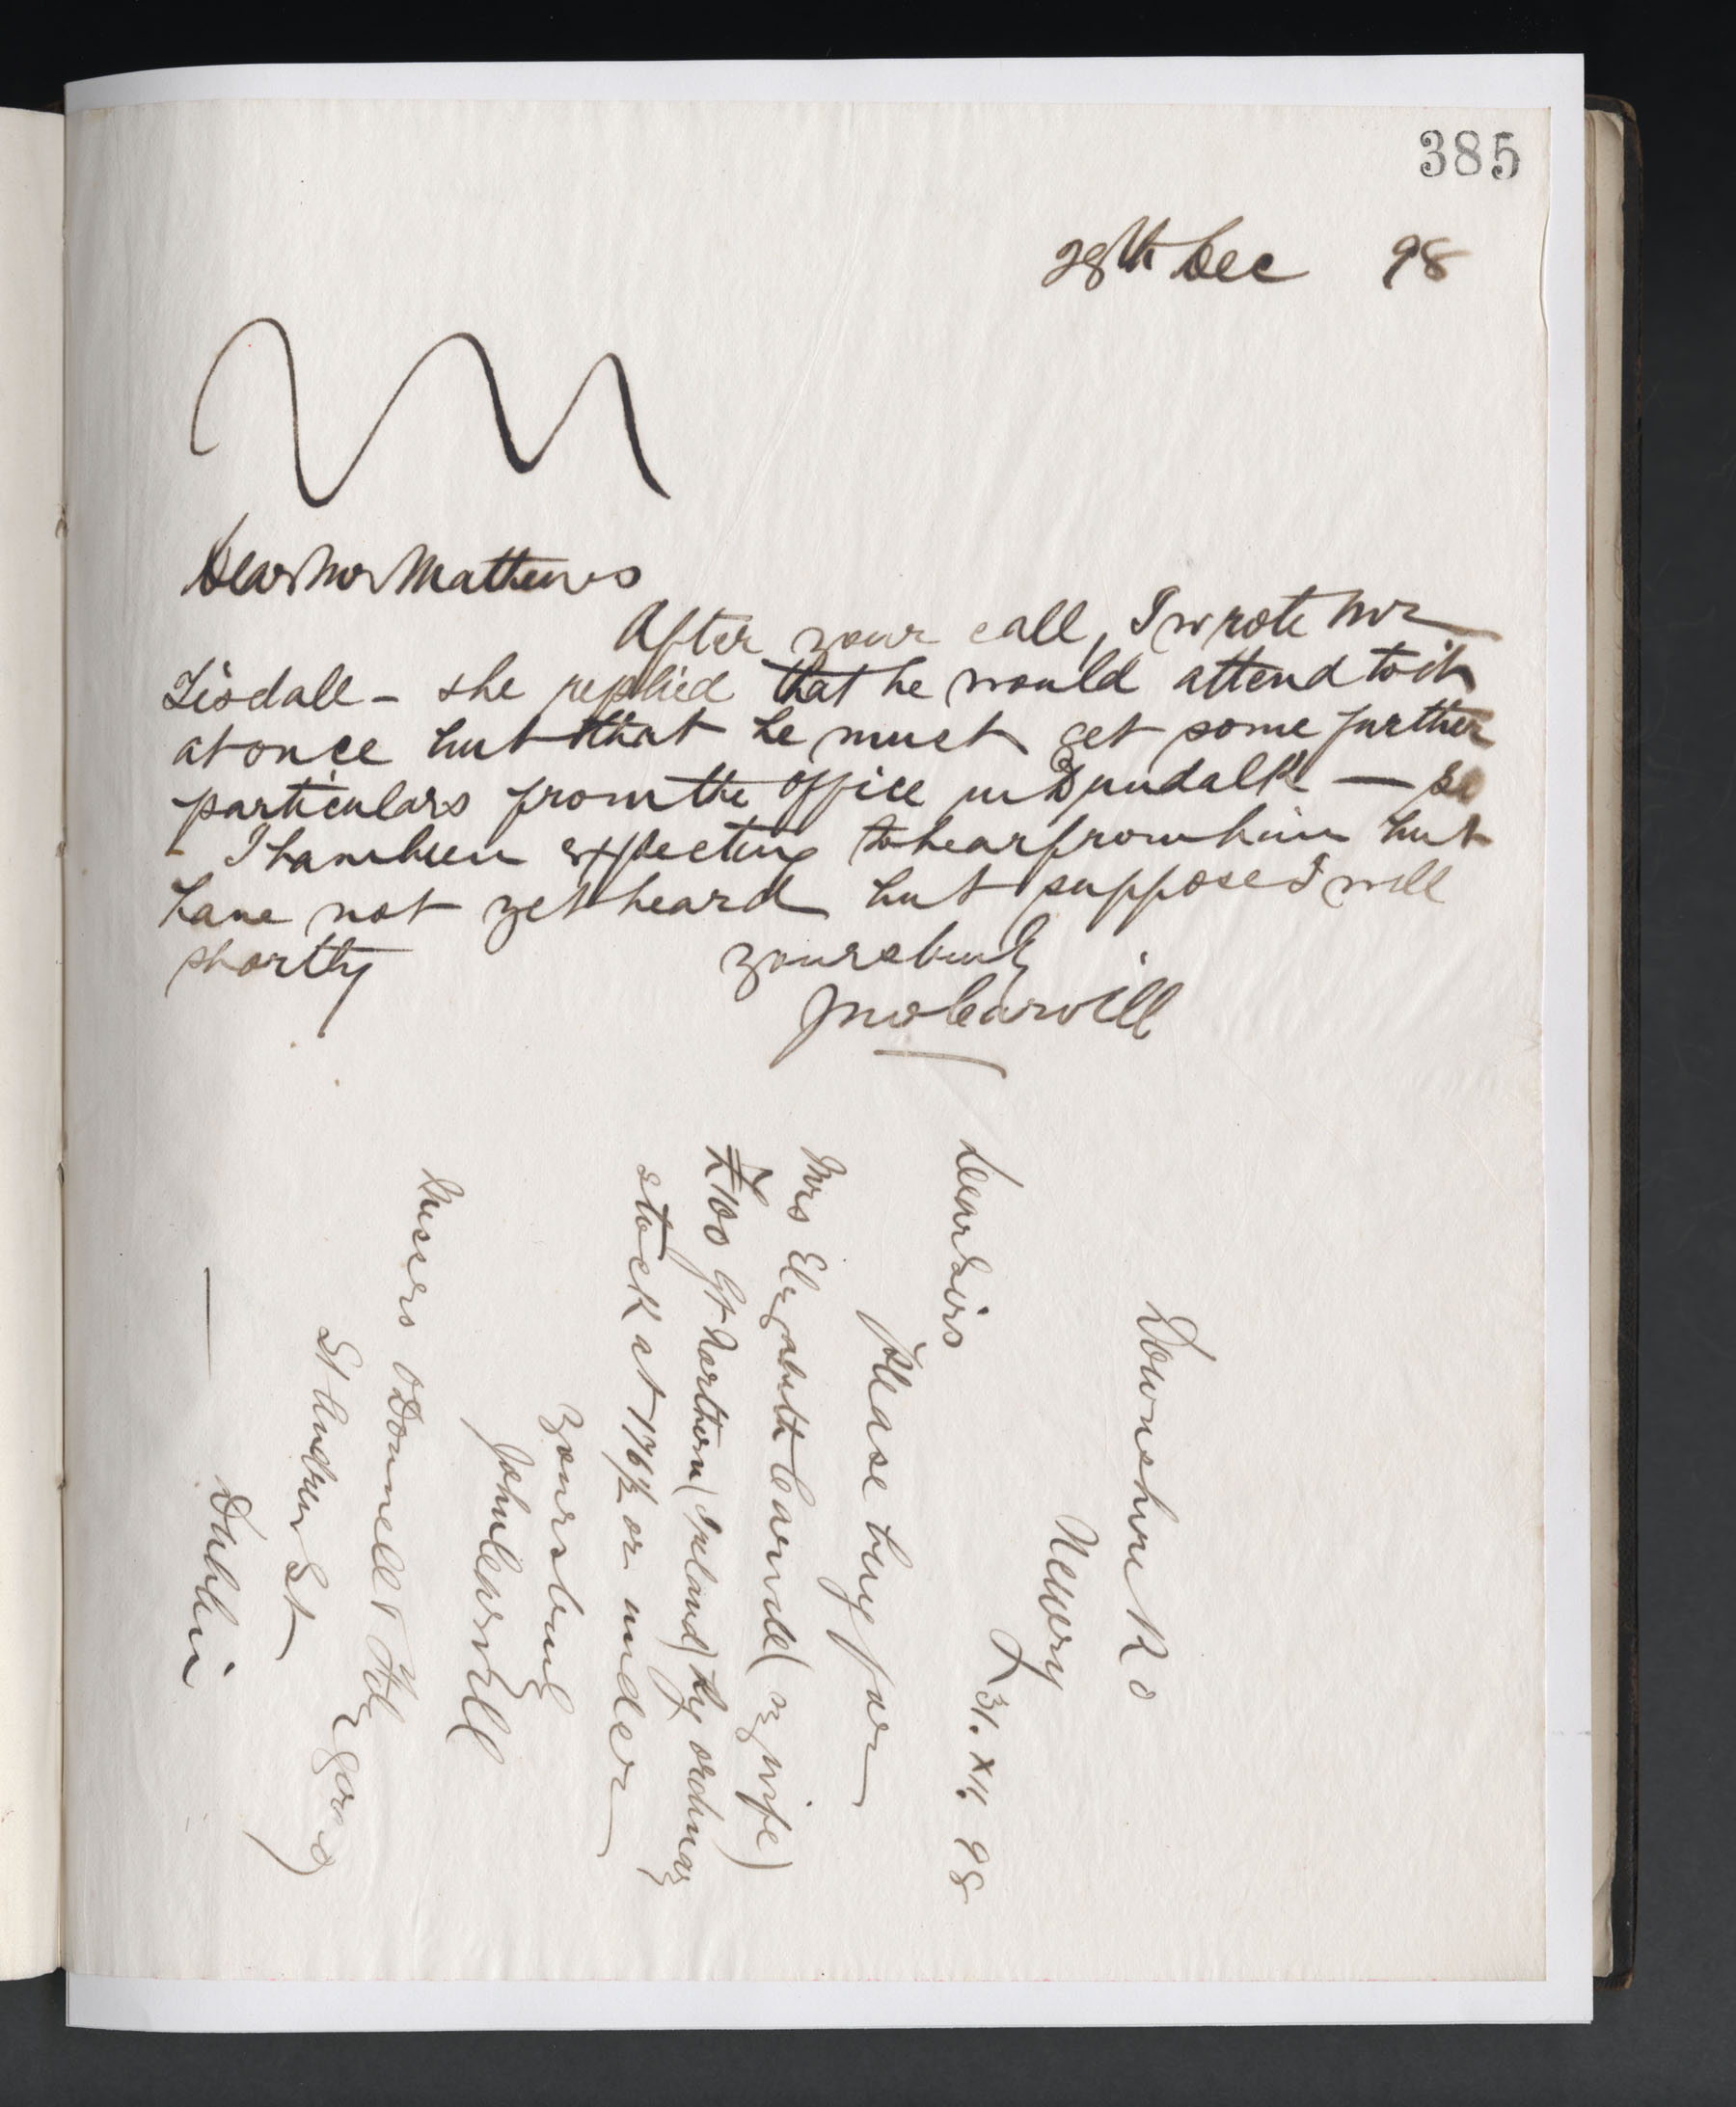 385
28th Dec 98
Dear Mr Mathews
After your call, I wrote Mr
Tisdall - she replied that he would attend to it
at once but that he must get some further
particulars from the office in Dundalk — so
I have been expecting to hear from him but
have not yet heard but suppose I will
shortly
yours truly
Jno Carvill
Downshire Rd
Newry
31. XII. 98
Dear Sirs
Please buy for
Mrs Elizabeth Carvill (my wife)
£100 Gt Northern (Ireland) Ry ordinary
stock at 176½ or under
yours truly
John Carvill
Messrs O'Donnell & Fitzgerald
St Andrew St
Dublin